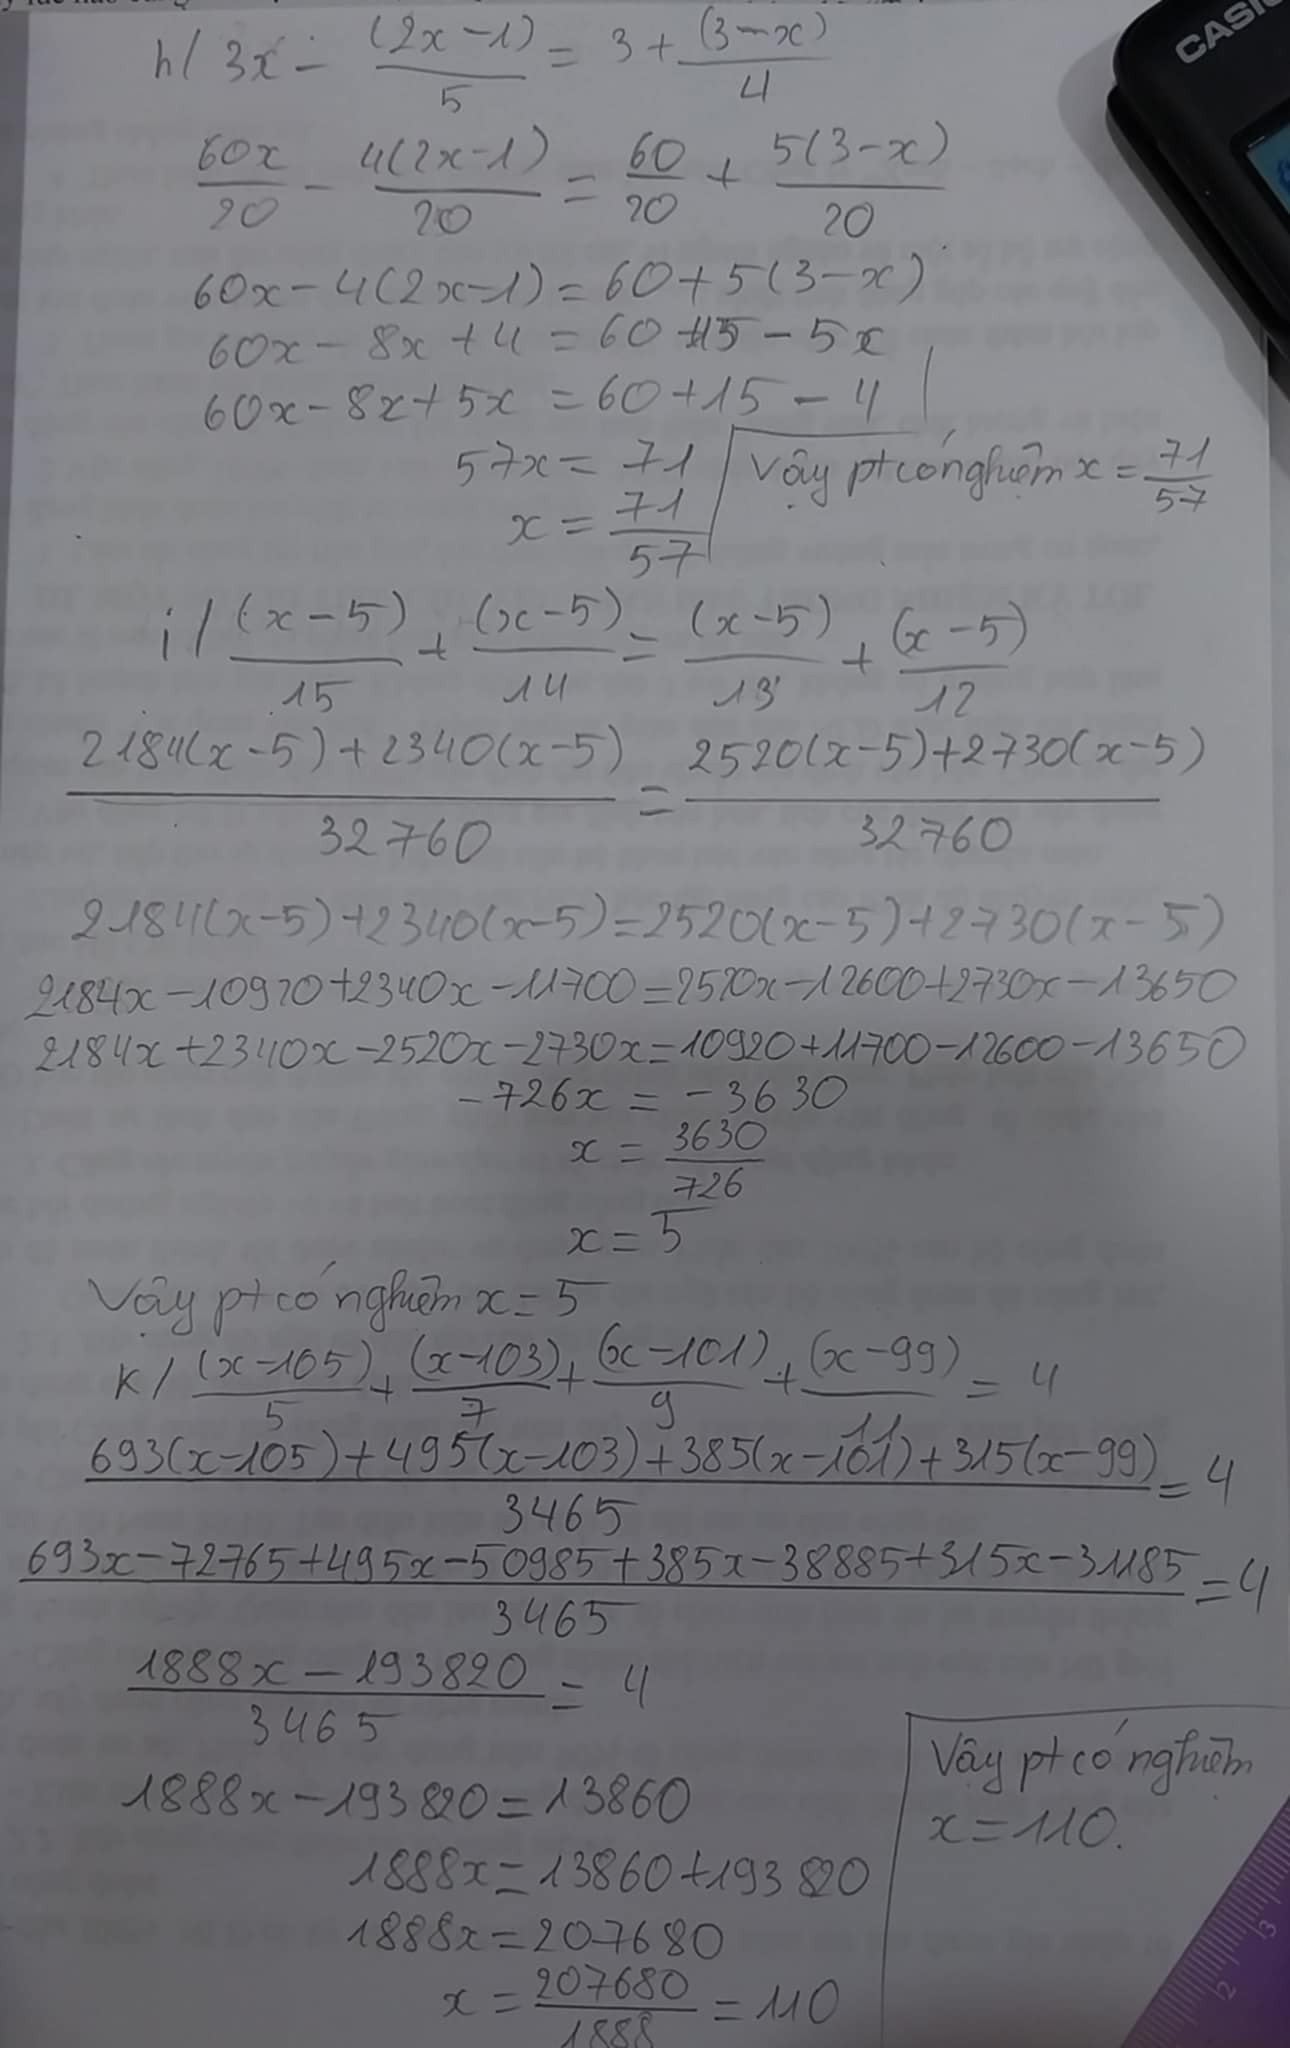 CASIO
h/ 3x - (2x-1)/5 = 3 + (3-x)/4
60x/20 - 4(2x-1)/20 = 60/20 + 5(3-x)/20
60x - 4(2x-1) = 60 + 5(3-x)
60x - 8x + 4 = 60 + 15 - 5x
60x - 8x + 5x = 60 + 15 - 4
57x = 71
x = 71/57
Vậy pt có nghiệm x = 71/57
i/ (x-5)/15 + (x-5)/14 = (x-5)/13 + (x-5)/12
2184(x-5)+2340(x-5)/32760 = 2520(x-5)+2730(x-5)/32760
2184(x-5)+2340(x-5)=2520(x-5)+2730(x-5)
2184x-10920+2340x-11700=2520x-12600+2730x-13650
2184x+2340x-2520x-2730x=10920+11700-12600-13650
-726x = -3630
x = 3630/726
x = 5
Vậy pt có nghiệm x = 5
K/ (x-105)/5 + (x-103)/7 + (x-101)/9 + (x-99)/11 = 4
693(x-105)+495(x-103)+385(x-101)+315(x-99)/3465 = 4
693x-72765+495x-50985+385x-38885+315x-31185/3465 = 4
1888x - 193820/3465 = 4
1888x - 193820 = 13860
1888x = 13860 + 193820
1888x = 207680
x = 207680/1888 = 110
Vậy pt có nghiệm
x = 110.
2 3